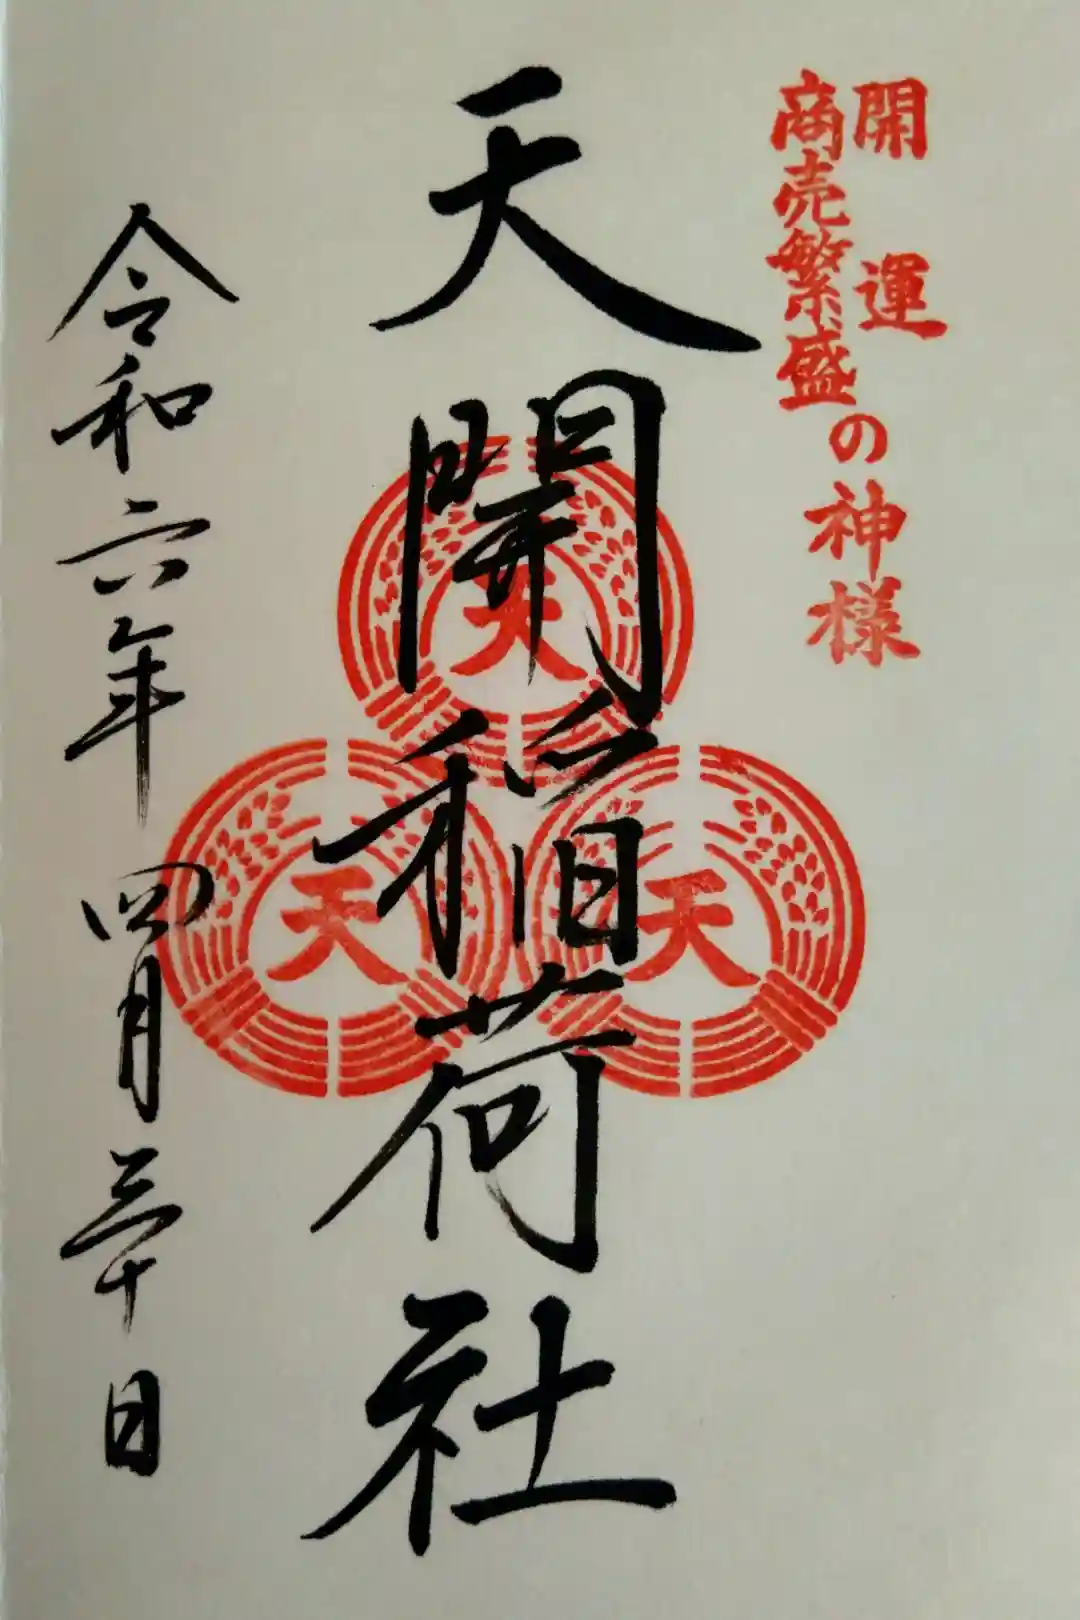 開運
商売繁盛
の神様
天開稲荷社
天
天
天
令和六年四月三十日